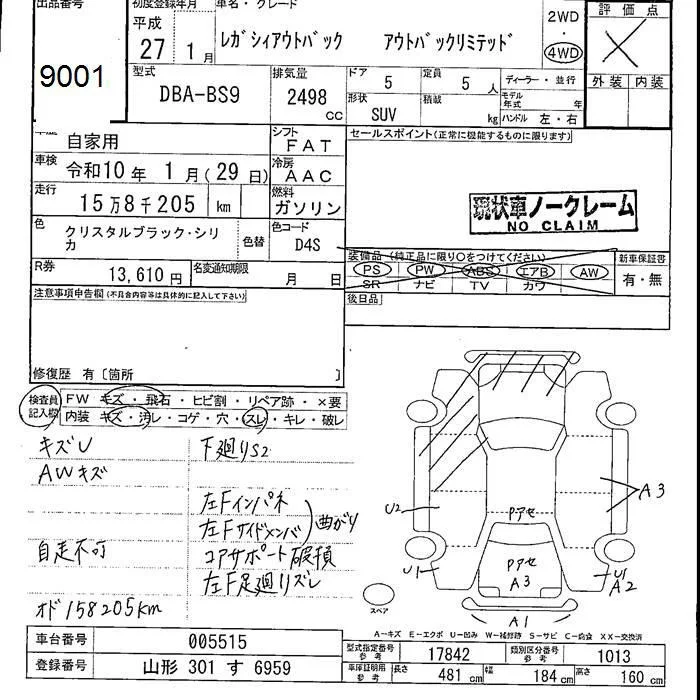 出品番号
9001
初度登録年月
平成
27 年 1 月
車名・グレード
レガシィアウトバック アウトバックリミテッド
2WD
・
4WD
評価点
外装 内装
型式
DBA-BS9
排気量
2498 cc
ドア
5
定員
5 人
形状
SUV
積載
kg
ディーラー・並行
モデル年式 年
ハンドル 左・右
車歴
自家用
シフト
FAT
車検
令和10年 1月(29日)
冷房
AAC
走行
15万8千205 km
燃料
ガソリン
色
クリスタルブラック・シリカ
色替
色コード
D4S
R券
13,610円
名変通知期限
月 日
セールスポイント(正常に機能するものに限ります)
現状車ノークレーム
NO CLAIM
装備品(純正品に限り○をつけてください)
PS PW ABS エアB AW
SR ナビ TV カワ
新車保証書
有・無
後日品
注意事項申告欄(不具合内容等は具体的に記入して下さい)
修復歴 有〔箇所 〕
検査員記入欄
FW キズ・飛石・ヒビ割・リペア跡・×要
内装 キズ・汚レ・コゲ・穴・スレ・キレ・破レ
キズU
AWキズ
自走不可
オド158205km
下廻りS2
左Fインパネ
左Fサイドメンバ
曲がり
コアサポート破損
左F足廻りズレ
U2
U1
Pアセ
Pアセ
A3
A3
U1
A2
A1
スペア
A-キズ E-エクボ U-凹み W-補修跡 S-サビ C-腐食 XX-交換済
車台番号
005515
登録番号
山形 301 す 6959
型式指定番号
参考
17842
類別区分番号
参考
1013
車庫証明用
参考
長さ
481 cm
幅
184 cm
高さ
160 cm